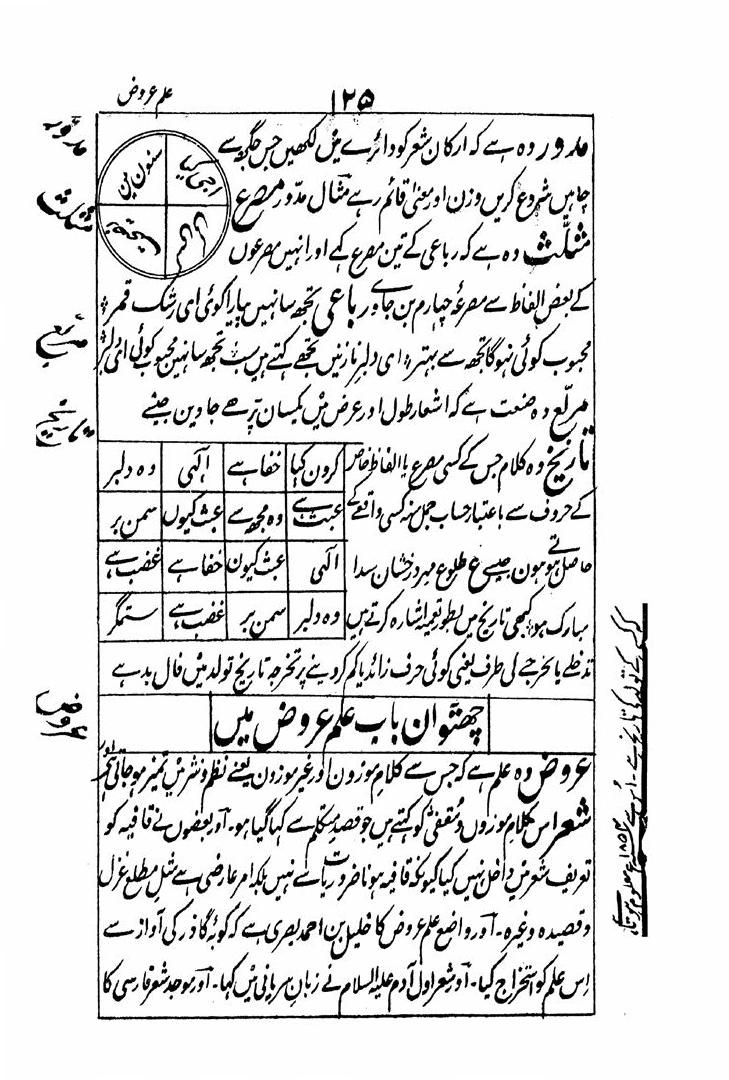 ۱۲۵
علم عروض
مدور وہ ہے کہ ارکان شعر کو دائرے میں لکھیں جس جگہ سے
چاہیں شروع کریں وزن اور معنی قائم رہے مثال مدور مصرع
مثلث وہ ہے کہ رباعی کے تین مصرع کہے اور انہیں مصرعوں
کے بعض الفاظ سے مصرعہ چہارم بن جاوے رباعی تجھ سا نہیں پیارا کوئی ای رشک قمر
محبوب کوئی نہوگا تجھ سے بہتر ای دلبر نازنیں تجھے کہتے ہیں سب تجھ سا نہین محبوب کوئی ای دلبر
مربع وہ صنعت ہے کہ اشعار طول اور عرض میں یکسان پڑھے جاوین جیسے
تاریخ وہ کلام جس کے کسی مصرع یا الفاظ خاص
کے حروف سے باعتبار حساب جمل سنہ کسی واقعے کے
حاصل ہوتے ہون جیسے ع طلوع مہر درخشان سدا
مبارک ہو کبھی تاریخ میں بطور تعمیہ اشارہ کرتے ہیں
تدخلے یا تخرجے کی طرف یعنی کوئی حرف زائد یا کم کر دینے پر تخرجہ تاریخ تولد میں فال بد ہے
کرون کیا خفا ہے الٰہی وہ دلبر
عبث ہے وہ مجھ سے عبث کیوں سمن بر
الٰہی عبث کیون خفا ہے غضب ہے
وہ دلبر سمن بر غضب ہے ستمگر
چھٹوان باب علم عروض میں
عروض وہ علم ہے کہ جس سے کلام موزون اور غیر موزون یعنے نظم و نثر میں تمیز ہو جاتی ہے اور
شعر اس کلام موزوں و مقفیٰ کو کہتے ہیں جو قصد متکلم سے کہا گیا ہو۔ اور بعضوں نے قافیہ کو
تعریف شعر میں داخل نہیں کیا کیونکہ قافیہ ہونا ضروریات سے نہیں بلکہ امر عارضی ہے مثل مطلع غزل
و قصیدہ وغیرہ۔ اور واضع علم عروض کا خلیل بن احمد بصری ہے کہ کوبۂ گاذر کی آواز سے
اِس علم کو استخراج کیا۔ اور شعر اول آدم علیہ السلام نے زبان سریانی میں کہا۔ اور موجد شعر فارسی کا
مدور
مثلث
مربع
تاریخ
عروض